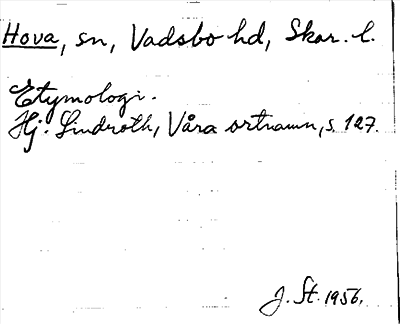 Hova, sn, Vadsbo hd, Skar. l.
Etymologi.
Hj. Lindroth, Våra ortnamn, s. 127.
J. St. 1956.